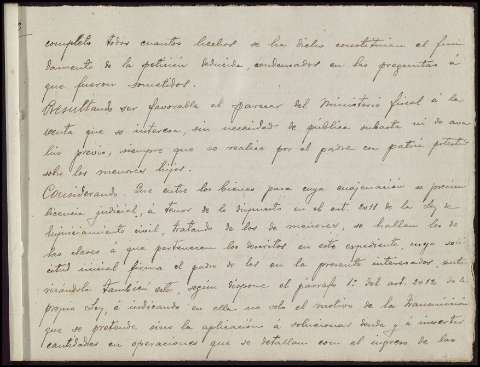 completo todos cuantos hechos se ha dicho constituian el fun
damento de la petición deducida, condensados en las preguntas á
que fueron sometidos.
Resultando ser favorable el parecer del Ministerio fiscal á la
venta que se interesa, sin necesidad de pública subasta ni de ava
lúo previo, siempre que se realice por el padre con patria potestad
sobre los menores hijos.
Considerando: Que entre los bienes para cuya enajenación se precisa
licencia judicial, á tenor de lo dispuesto en el art. 2011 de la Ley de
Enjuiciamiento civil, tratando de los de menores, se hallan los de
las clases á que pertenecen los descritos en este expediente, cuya soli
citud inicial firma el padre de los en la presente interesados, auto
rizándola también este, segun dispone el párrafo 1º del art. 2012 de la
propia Ley, é indicando en ella no solo el motivo de la transmisión
que se pretende, sino la aplicación á solucionar deuda y á invertir
cantidades en operaciones que se detallan con el ingreso de las